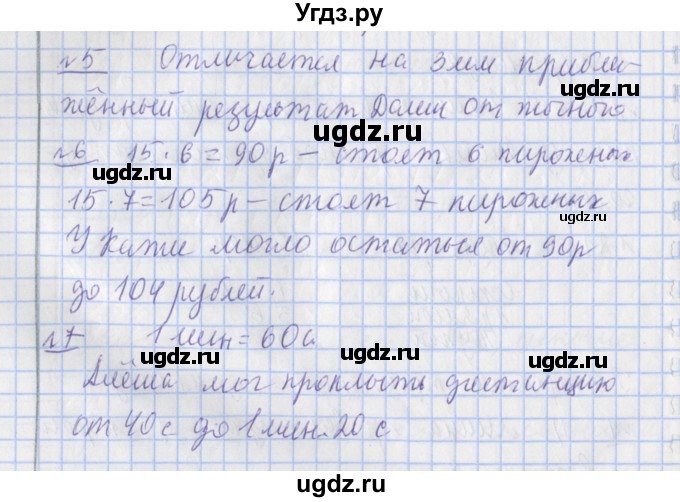 Угдз.ру
№5 Отличается на 3мм прибли-
жённый результат Дали от точного
ugdz.ru ugdz.ru
№6 15·6=90р – стоят 6 пирожных
15·7=105р – стоят 7 пирожных
ugdz.ru
У Кати могло остаться от 90р
ugdz.ru ugdz.ru
до 104 рублей.
№7 1 мин = 60с
ugdz.ru
Алёша мог проплыть дистанцию
ugdz.ru
от 40с до 1 мин 20 с
ugdz.ru
Угдз.ру